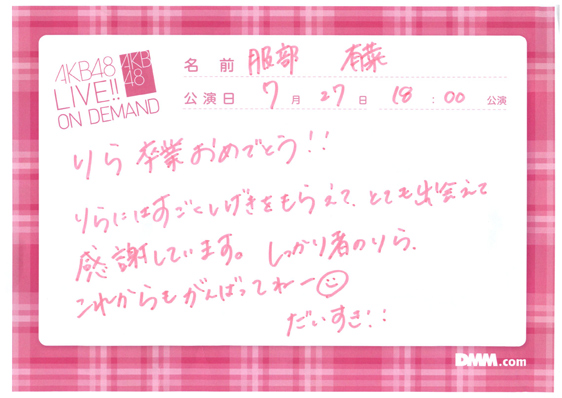 AKB48
LIVE!!
ON DEMAND
AKB
48
名前 服部 有菜
公演日 7月27日 18:00 公演
りら 卒業おめでとう!!
りらにはすごくしげきをもらえて、とても出会えて
感謝しています。しっかり者のりら、
これからもがんばってねー
だいすき!!
DMM.com